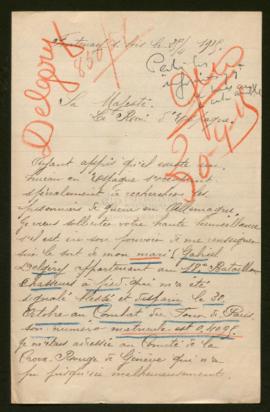 Delgery
1915
Sa Majesté
Le Roi d'Espagne
Ayant appris qu'il existe un
bureau en Espagne s'occupant
spécialement de rechercher les
prisonniers de guerre en Allemagne
je viens solliciter votre haute bienveillance
s'il est en son pouvoir de me renseigner
sur le sort de mon mari Gabriel
Delgery appartenant au Bataillon
chasseurs à pied qui m'a été
signalé blessé et disparu le 30
octobre au Combat du
son numéro matricule est
je m'étais adressée au Comité de la
Croix Rouge de Genève qui n'a
pu jusqu'ici malheureusement